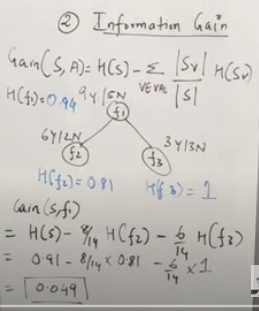 ② Information Gain
Gain(S,A)= H(S) - Σ |Sv| H(Sv)
VEVAL |S|
H(f1)=0.94 9Y|5N
f1
6Y|2N 3Y|3N
f2 f3
H(f2)=0.81 H(f3)=1
Gain(S,f1)
= H(S) - 8/14 H(f2) - 6/14 H(f3)
= 0.91 - 8/14 × 0.81 - 6/14 × 1
= 0.049